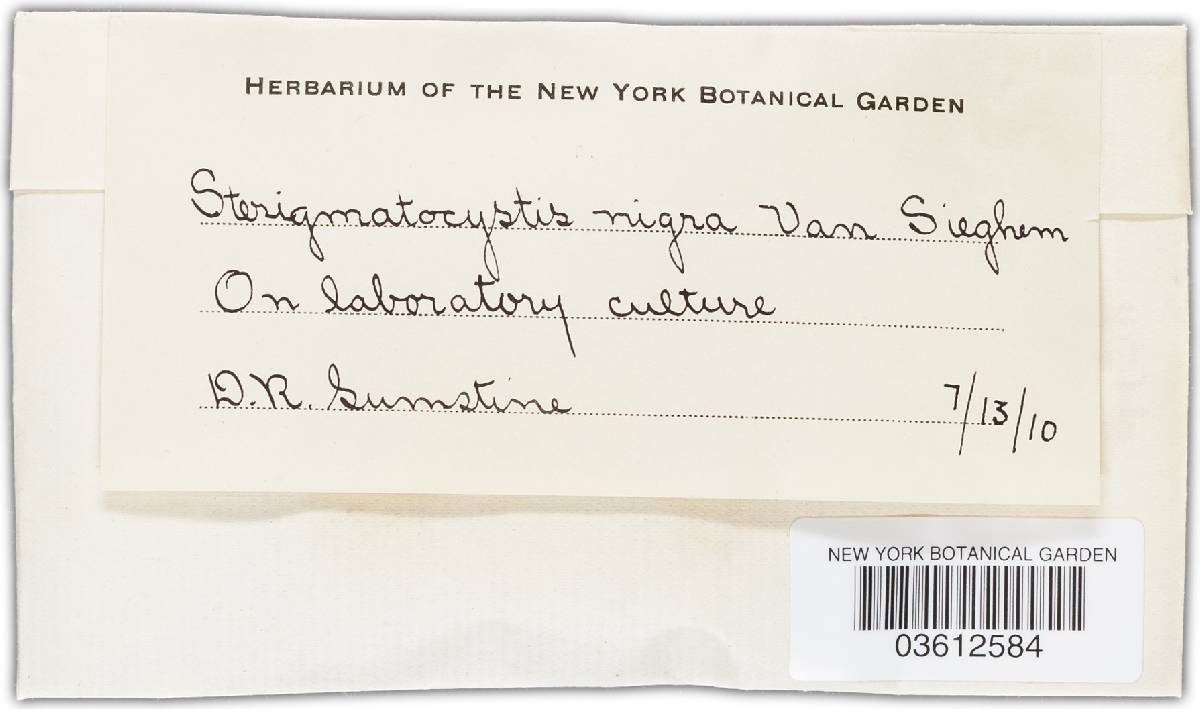 HERBARIUM OF THE NEW YORK BOTANICAL GARDEN
Sterigmatocystis nigra Van Sieghem
On laboratory culture
D.R. Sumstine 7/13/10
NEW YORK BOTANICAL GARDEN
03612584